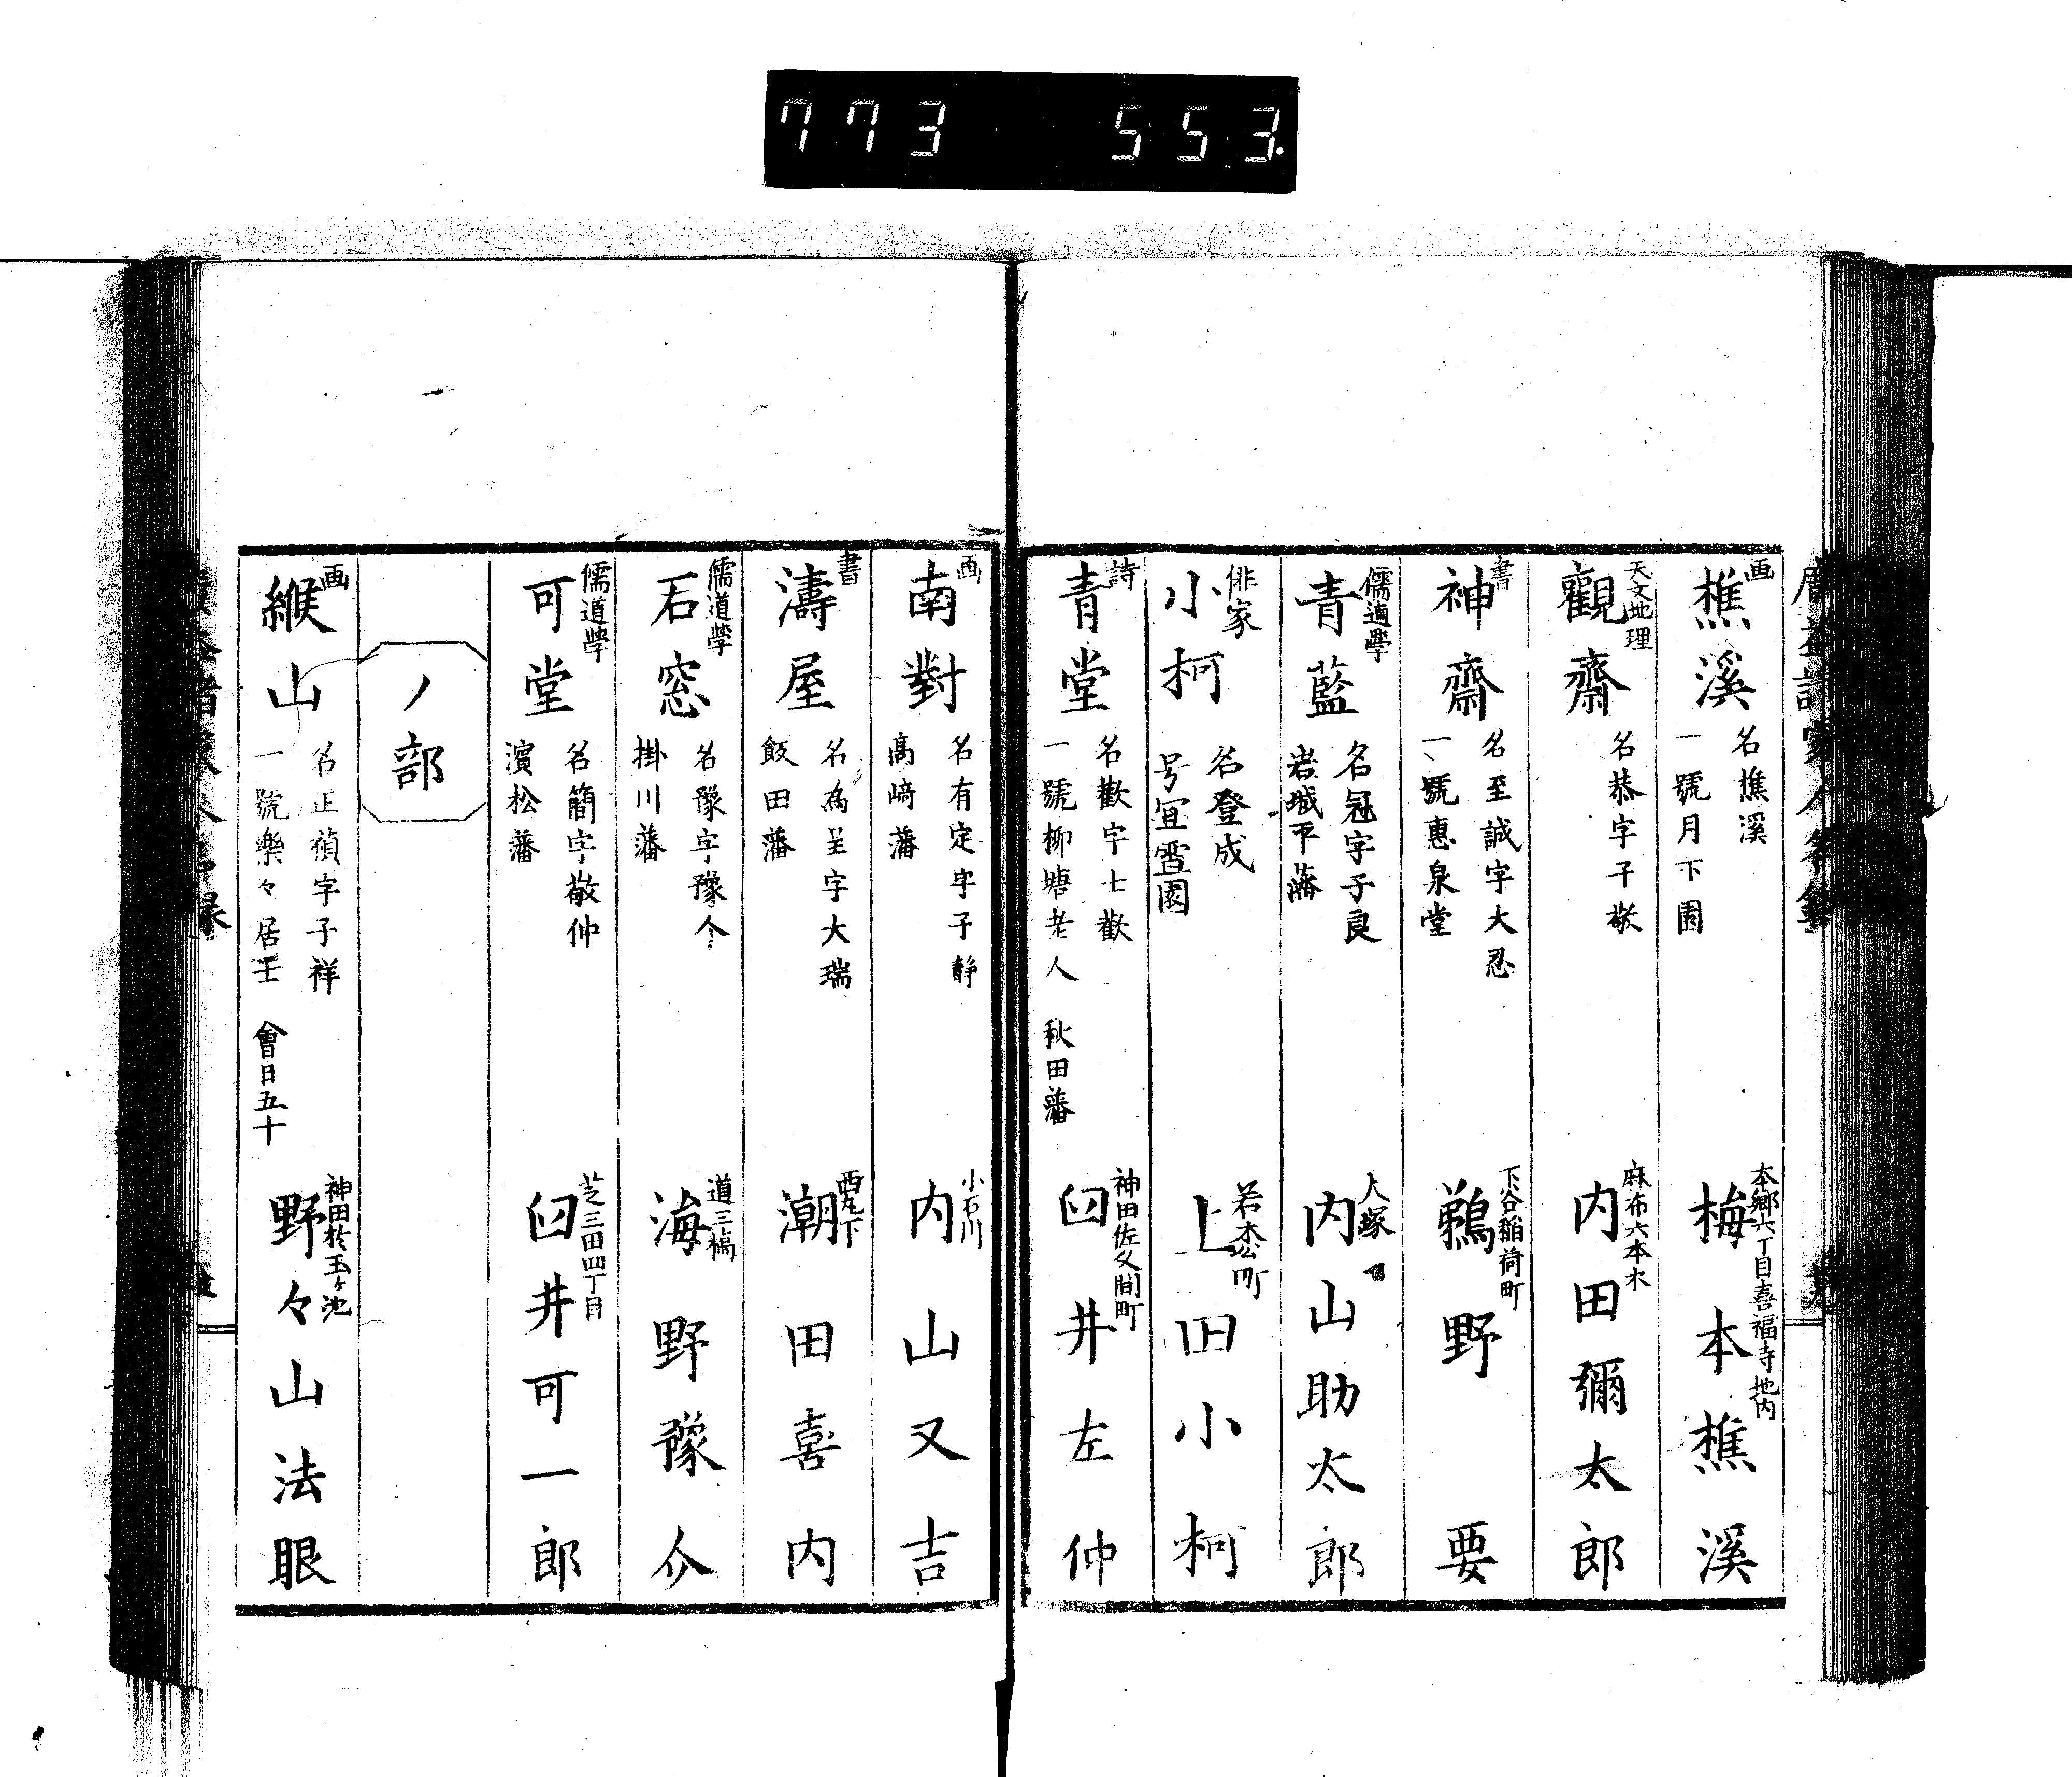 773 553.
画
樵溪
名樵溪
一號月下園
本郷六丁目喜福寺地内
梅本樵溪
天文地理
觀齋
名恭字子敬
麻布六本木
内田彌太郎
書
神齋
名至誠字大忍
一號惠泉堂
下谷稲荷町
鵜野 要
儒道學
青藍
名冠字子良
岩城平藩
大塚
内山助太郎
俳家
小柯
名登成
号宜雪園
若木公町
上田小柯
詩
青堂
名歡字士歡
一號柳塘老人 秋田藩
神田佐久間町
臼井左仲
画
南對
名有定字子静
高崎藩
小石川
内山又吉
書
濤屋
名為呈字大瑞
飯田藩
西丸下
潮田喜内
儒道學
石窓
名豫字豫介
掛川藩
道三橋
海野豫介
儒道學
可堂
名簡字敬仲
濱松藩
芝三田四丁目
臼井可一郎
ノ部
画
緱山
名正禎字子祥
一號樂々居士 會日五十
神田於玉ヶ池
野々山法眼